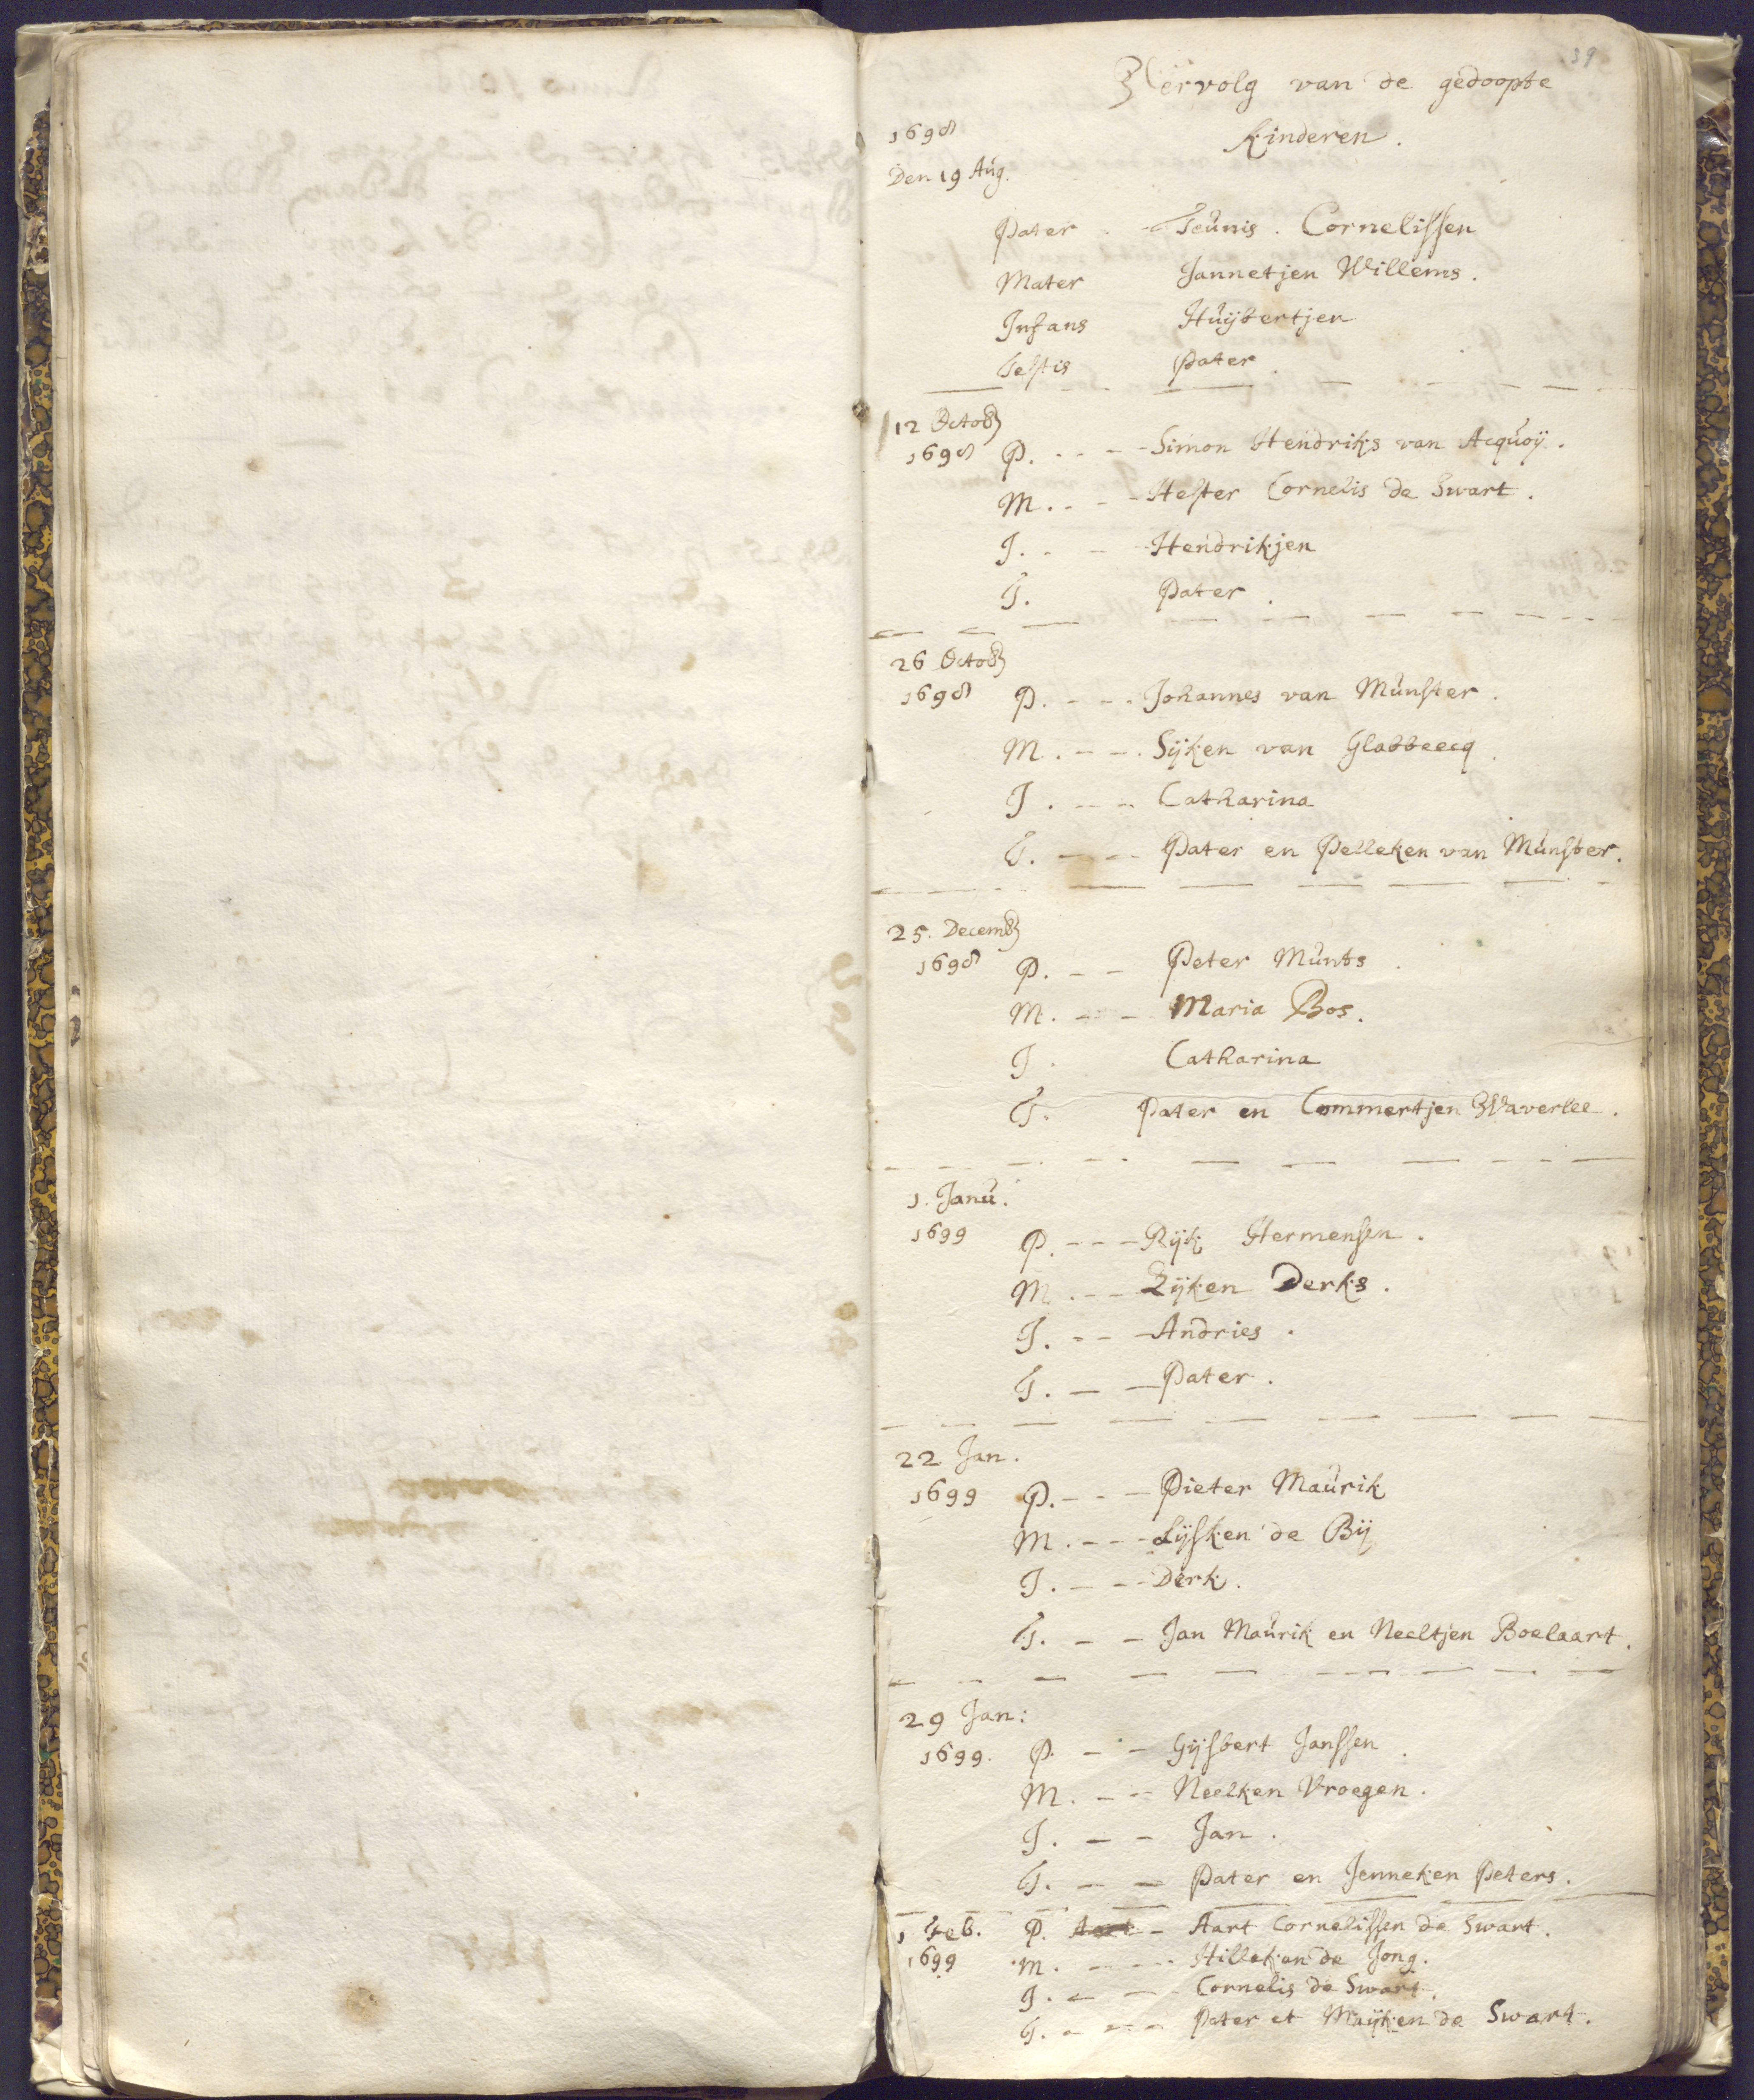 39
Vervolg van de gedoopte
1698 Kinderen.
Den 19 Aug.
Pater - Teunis. Cornelissen
Mater Jannetjen Willems.
Infans Huijbertjen
Testis Pater.
12 Octob
1698 P. - - - Simon Hendriks van Acquoij.
M. - - - Hester Cornelis de Swart.
J. - - - Hendrikjen
T. Pater.
26 Octob
1698 P. - - - Johannes van Munster.
M. - - - Sijken van Glabbeecq.
J. - - - Catharina
T. - - - Pater en Pelleken van Munster.
25. Decemb
1698 P. - - Peter Munts.
M. - - Maria Bos.
J. Catharina
T. Pater en Commertjen Waverlee.
1. Janu.
1699 P. - - - Rijk Hermensen.
M. - - - Zijken Derks.
J. - - - Andries.
T. - - Pater.
22 Jan.
1699 P. - - - Pieter Maurik
M. - - - Lijsken de Bij
J. - - - Derk.
T. - - Jan Maurik en Neeltjen Boelaart.
29 Jan:
1699. P. - - Gijsbert Janssen.
M. - - Neelken Vroegen.
J. - - Jan.
T. - - Pater en Jenneken Peters.
1 Feb. P. Aart - Aart Cornelissen de Swart.
1699 M. - - - Hilleken de Jong.
J. - - Cornelis de Swart.
T. - - - Pater et Maijken de Swart.